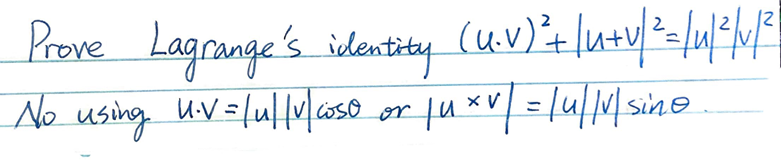 Prove Lagrange's identity (u·v)²+|u+v|²=|u|²|v|²
No using u·v=|u||v|cosθ or |u×v|=|u||v|sinθ.